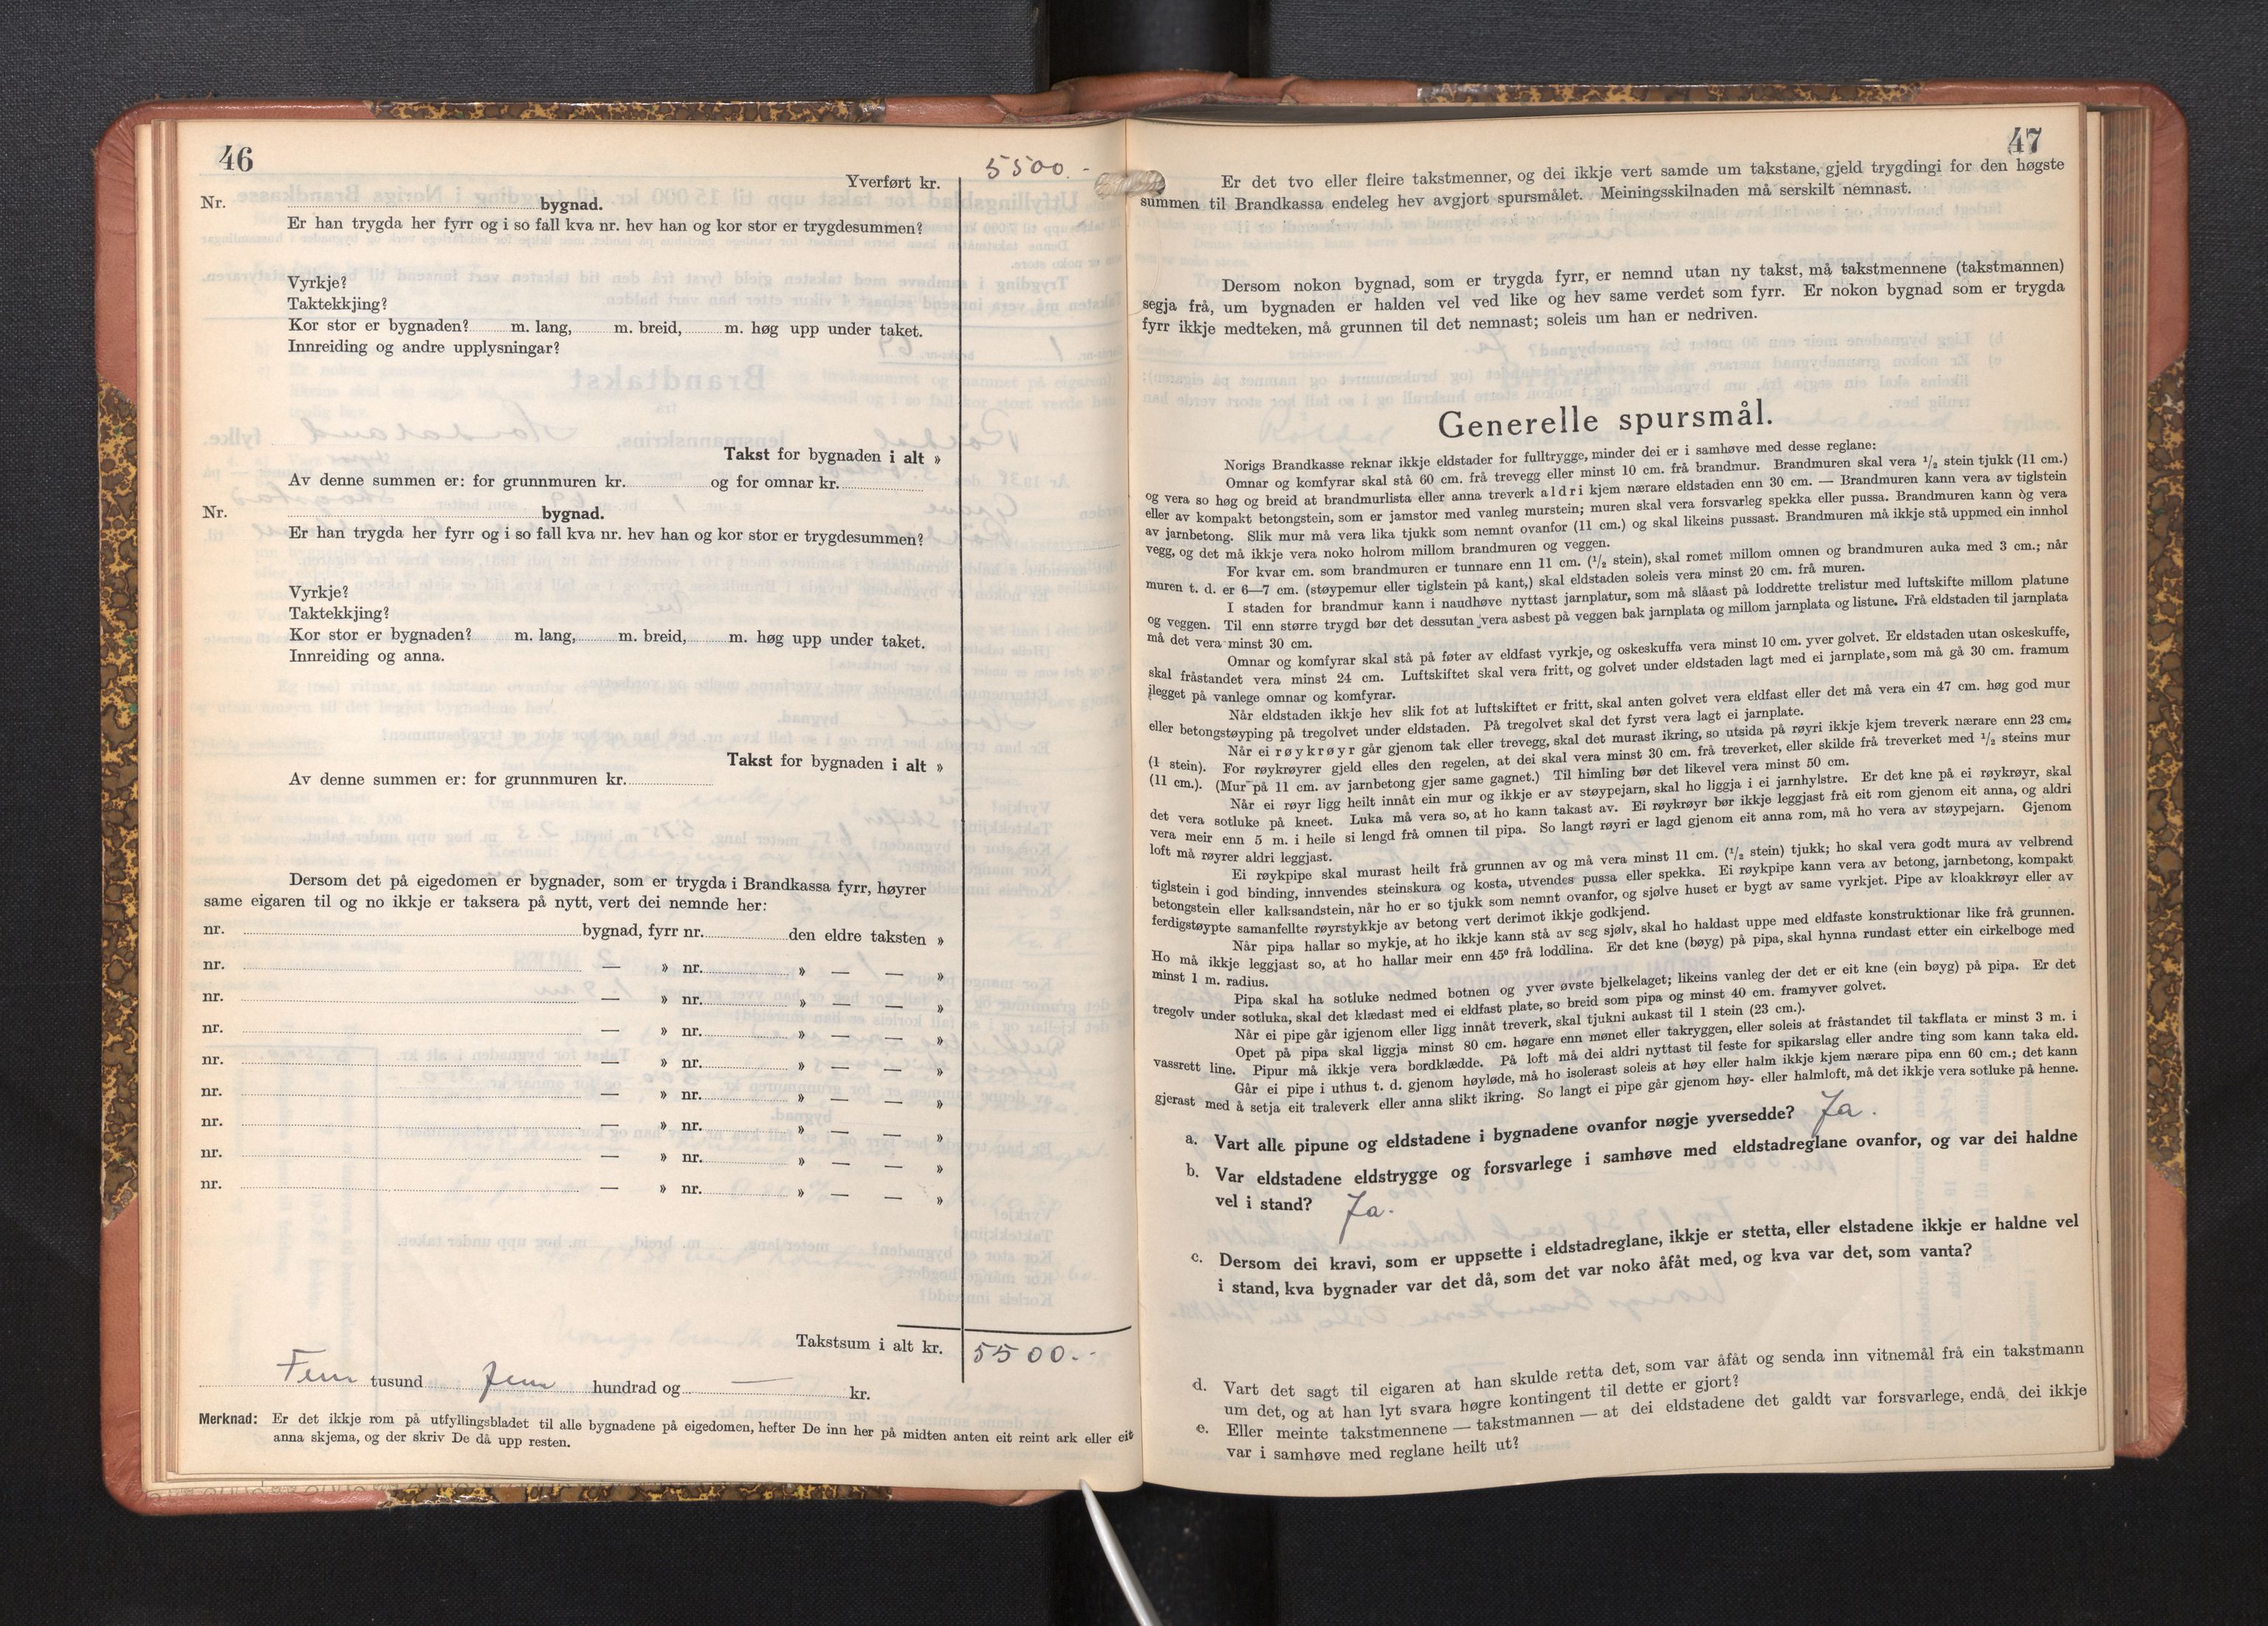 46
Yverført kr. 5500.-
Nr. bygnad.
Er han trygda her fyrr og i so fall kva nr. hev han og kor stor er trygdesummen?
Vyrkje?
Taktekkjing?
Kor stor er bygnaden? m. lang, m. breid, m. høg upp under taket.
Innreiding og andre upplysningar?
Takst for bygnaden i alt »
Av denne summen er: for grunnmuren kr. og for omnar kr.
Nr. bygnad.
Er han trygda her fyrr og i so fall kva nr. hev han og kor stor er trygdesummen?
Vyrkje?
Taktekkjing?
Kor stor er bygnaden? m. lang, m. breid, m. høg upp under taket.
Innreiding og anna.
Takst for bygnaden i alt »
Av denne summen er: for grunnmuren kr.
Dersom det på eigedomen er bygnader, som er trygda i Brandkassa fyrr, høyrer
same eigaren til og no ikkje er taksera på nytt, vert dei nemnde her:
nr. bygnad, fyrr nr. den eldre taksten »
nr. — » nr. » — — »
nr. — » nr. » — — »
nr. — » nr. » — — »
nr. — » nr. » — — »
nr. — » nr. » — — »
nr. — » nr. » — — »
nr. — » nr. » — — »
nr. — » nr. » — — »
Takstsum i alt kr. 5500.-
Fem tusund fem hundrad og — kr.
Merknad: Er det ikkje rom på utfyllingsbladet til alle bygnadene på eigedomen, hefter De inn her på midten anten eit reint ark eller eit
anna skjema, og der skriv De då upp resten.
47
Er det tvo eller fleire takstmenner, og dei ikkje vert samde um takstane, gjeld trygdingi for den høgste
summen til Brandkassa endeleg hev avgjort spursmålet. Meiningsskilnaden må serskilt nemnast.
Dersom nokon bygnad, som er trygda fyrr, er nemnd utan ny takst, må takstmennene (takstmannen)
segja frå, um bygnaden er halden vel ved like og hev same verdet som fyrr. Er nokon bygnad som er trygda
fyrr ikkje medteken, må grunnen til det nemnast; soleis um han er nedriven.
Generelle spursmål.
Norigs Brandkasse reknar ikkje eldstader for fulltrygge, minder dei er i samhøve med desse reglane:
Omnar og komfyrar skal stå 60 cm. frå trevegg eller minst 10 cm. frå brandmur. Brandmuren skal vera ¹/₂ stein tjukk (11 cm.)
og vera so høg og breid at brandmurlista eller anna treverk aldri kjem nærare eldstaden enn 30 cm. — Brandmuren kann vera av tiglstein
eller av kompakt betongstein, som er jamstor med vanleg murstein; muren skal vera forsvarleg spekka eller pussa. Brandmuren kann òg vera
av jarnbetong. Slik mur må vera lika tjukk som nemnt ovanfor (11 cm.) og skal likeins pussast. Brandmuren må ikkje stå uppmed ein innhol
vegg, og det må ikkje vera noko holrom millom brandmuren og veggen.
For kvar cm. som brandmuren er tunnare enn 11 cm. (¹/₂ stein), skal romet millom omnen og brandmuren auka med 3 cm.; når
muren t. d. er 6—7 cm. (støypemur eller tiglstein på kant,) skal eldstaden soleis vera minst 20 cm. frå muren.
I staden for brandmur kann i naudhøve nyttast jarnplatur, som må slåast på loddrette trelistur med luftskifte millom platune
og veggen. Til enn større trygd bør det dessutan vera asbest på veggen bak jarnplata og millom jarnplata og listune. Frå eldstaden til jarnplata
må det vera minst 30 cm.
Omnar og komfyrar skal stå på føter av eldfast vyrkje, og oskeskuffa vera minst 10 cm. yver golvet. Er eldstaden utan oskeskuffe,
skal fråstandet vera minst 24 cm. Luftskiftet skal vera fritt, og golvet under eldstaden lagt med ei jarnplate, som må gå 30 cm. framum
ilegget på vanlege omnar og komfyrar.
Når eldstaden ikkje hev slik fot at luftskiftet er fritt, skal anten golvet vera eldfast eller det må vera ein 47 cm. høg god mur
eller betongstøyping på tregolvet under eldstaden. På tregolvet skal det fyrst vera lagt ei jarnplate.
Når ei røykrøyr går gjenom tak eller trevegg, skal det murast ikring, so utsida på røyri ikkje kjem treverk nærare enn 23 cm.
(1 stein). For røykrøyrer gjeld elles den regelen, at dei skal vera minst 30 cm. frå treverket, eller skilde frå treverket med ¹/₂ steins mur
(11 cm.). (Mur på 11 cm. av jarnbetong gjer same gagnet.) Til himling bør det likevel vera minst 50 cm.
Når ei røyr ligg heilt innåt ein mur og ikkje er av støypejarn, skal ho liggja i ei jarnhylstre. Er det kne på ei røykrøyr, skal
det vera sotluke på kneet. Luka må vera so, at ho kann takast av. Ei røykrøyr bør ikkje leggjast frå eit rom gjenom eit anna, og aldri
vera meir enn 5 m. i heile si lengd frå omnen til pipa. So langt røyri er lagd gjenom eit anna rom, må ho vera av støypejarn. Gjenom
loft må røyrer aldri leggjast.
Ei røykpipe skal murast heilt frå grunnen av og må vera minst 11 cm. (¹/₂ stein) tjukk; ho skal vera godt mura av velbrend
tiglstein i god binding, innvendes steinskura og kosta, utvendes pussa eller spekka. Ei røykpipe kann vera av betong, jarnbetong, kompakt
betongstein eller kalksandstein, når ho er so tjukk som nemnt ovanfor, og sjølve huset er bygt av same vyrkjet. Pipe av kloakkrøyr eller av
ferdigstøypte samanfellte røyrstykkje av betong vert derimot ikkje godkjend.
Når pipa hallar so mykje, at ho ikkje kann stå av seg sjølv, skal ho haldast uppe med eldfaste konstruktionar like frå grunnen.
Ho må ikkje leggjast so, at ho hallar meir enn 45° frå loddlina. Er det kne (bøyg) på pipa, skal hynna rundast etter ein cirkelboge med
minst 1 m. radius.
Pipa skal ha sotluke nedmed botnen og yver øvste bjelkelaget; likeins vanleg der det er eit kne (ein bøyg) på pipa. Er det
tregolv under sotluka, skal det klædast med ei eldfast plate, so breid som pipa og minst 40 cm. framyver golvet.
Når ei pipe går igjenom eller ligg innåt treverk, skal tjukni aukast til 1 stein (23 cm.).
Opet på pipa skal liggja minst 80 cm. høgare enn mønet eller takryggen, eller soleis at fråstandet til takflata er minst 3 m. i
vassrett line. Pipur må ikkje vera bordklædde. På loft må dei aldri nyttast til feste for spikarslag eller andre ting som kann taka eld.
Går ei pipe i uthus t. d. gjenom høyløde, må ho isolerast soleis at høy eller halm ikkje kjem nærare pipa enn 60 cm.; det kann
gjerast med å setja eit traleverk eller anna slikt ikring. So langt ei pipe går gjenom høy- eller halmloft, må det ikkje vera sotluke på henne.
a. Vart alle pipune og eldstadene i bygnadene ovanfor nøgje yversedde? Ja.
b. Var eldstadene eldstrygge og forsvarlege i samhøve med eldstadreglane ovanfor, og var dei haldne
vel i stand? Ja.
c. Dersom dei kravi, som er uppsette i eldstadreglane, ikkje er stetta, eller elstadene ikkje er haldne vel
i stand, kva bygnader var det då, som det var noko åfåt med, og kva var det, som vanta?
d. Vart det sagt til eigaren at han skulde retta det, som var åfåt og senda inn vitnemål frå ein takstmann
um det, og at han lyt svara høgre kontingent til dette er gjort?
e. Eller meinte takstmennene — takstmannen — at dei eldstadene det galdt var forsvarlege, endå dei ikkje
var i samhøve med reglane heilt ut?